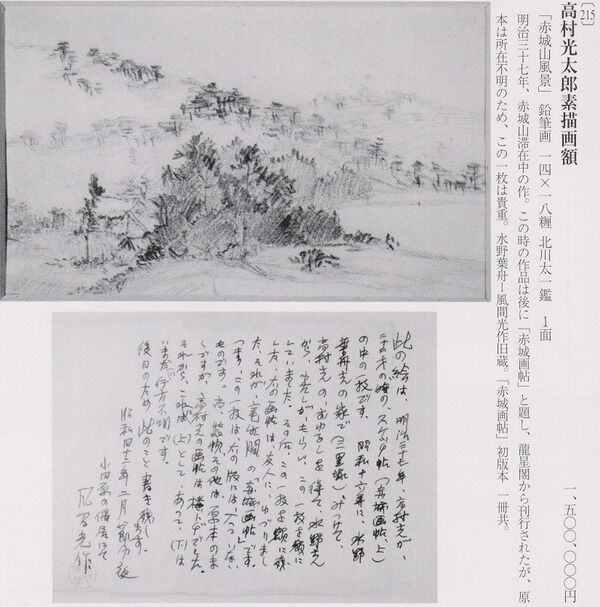 〔215〕
高村光太郎素描画額
一、五〇〇、〇〇〇円
「赤城山風景」 鉛筆画 一四×一八糎 北川太一鑑 1面
明治三十七年、赤城山滞在中の作。この時の作品は後に「赤城画帖」と題し、龍星閣から刊行されたが、原
本は所在不明のため、この一枚は貴重。水野葉舟ー風間光作旧蔵。「赤城画帖」初版本 一冊共。
此の絵は、明治三十七年 高村さんが、
二十二才の時の、スケッチ帖(赤城画帖、上)
の中の一枚です。 昭和十六年に、水野
葉舟さんの家で(三里塚)みつけて、
高村さんの、おゆるしを得て、水野さん
から、
していました。その后、この一枚を額に残
し
た、それが、龍星閣の「赤城画帖」です。
この一枚は
ものです。
ですが、高村さんの画帖は
それから、 (上)として、あって、(下)は
いまだに行方不明です。
後日のため 此のこと書き残し
ます。
昭和四十二年二月 節分の夜
小田原の僑居にて
風間光作